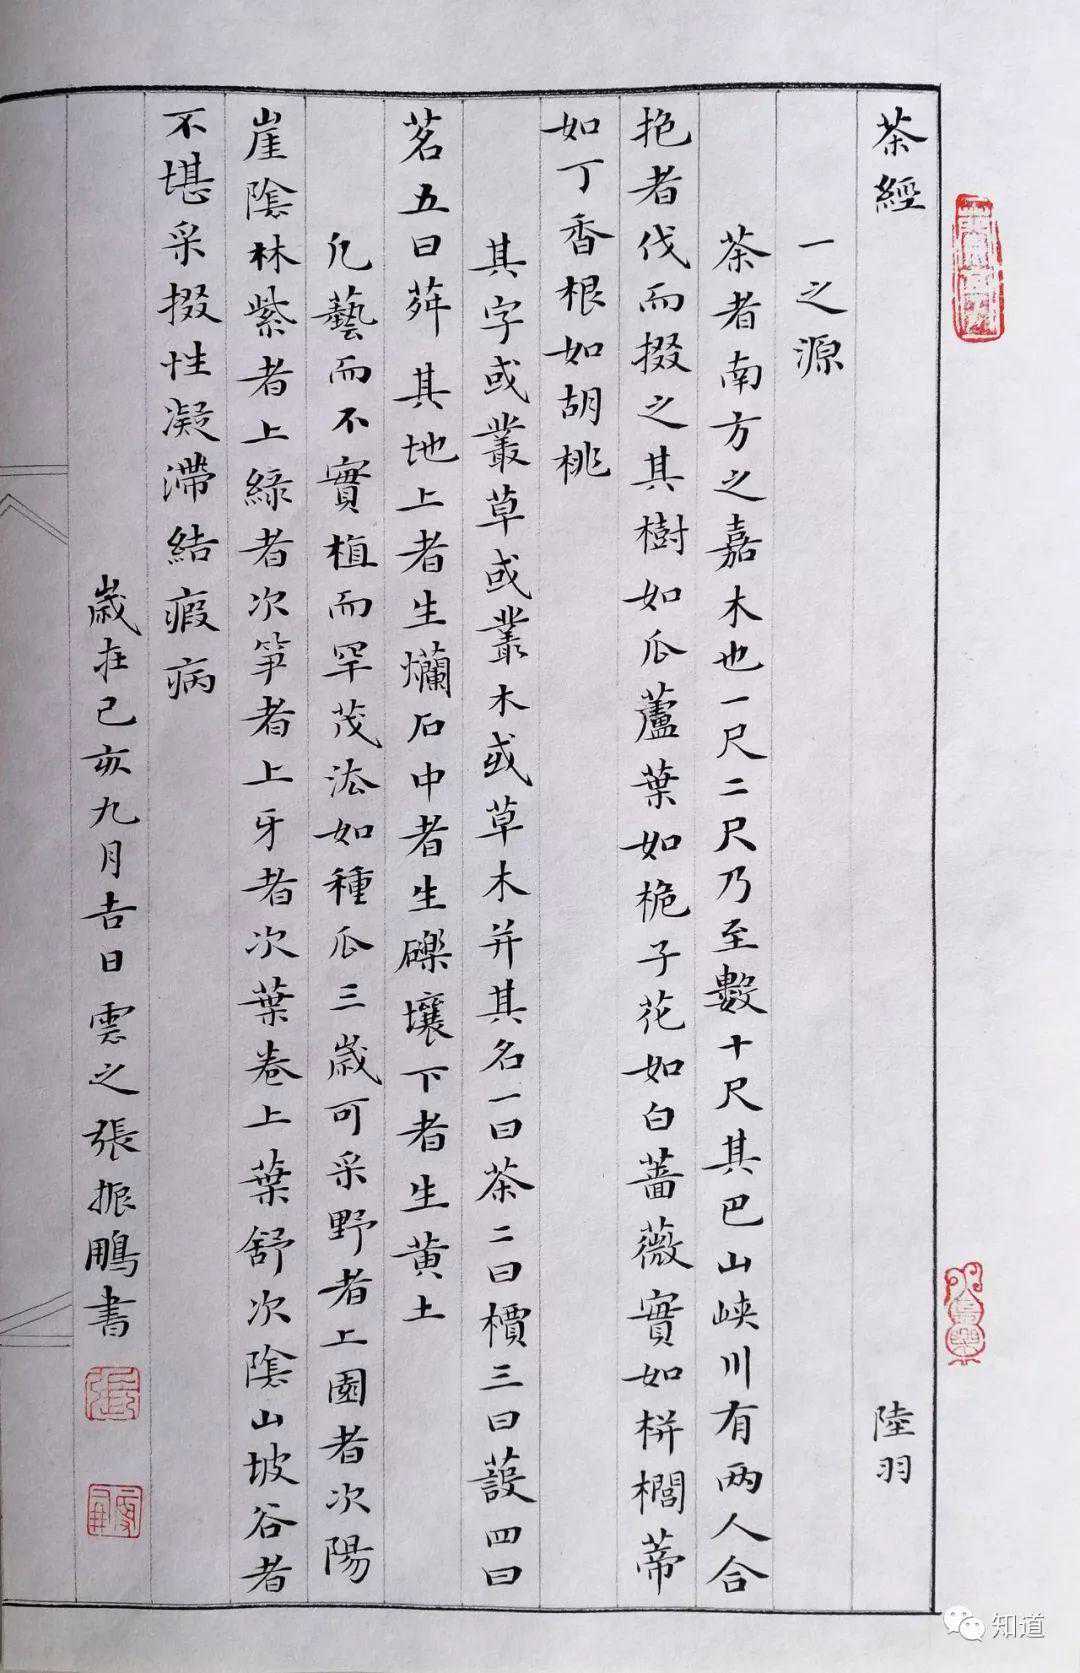 茶經 陸羽
一之源
茶者南方之嘉木也一尺二尺乃至數十尺其巴山峽川有兩人合
抱者伐而掇之其樹如瓜蘆葉如梔子花如白薔薇實如栟櫚蒂
如丁香根如胡桃
其字或叢草或叢木或草木并其名一曰茶二曰檟三曰蔎四曰
茗五曰荈 其地上者生爛石中者生礫壤下者生黃土
凡藝而不實植而罕茂法如種瓜三歲可采野者上園者次陽
崖陰林紫者上綠者次筍者上牙者次葉卷上葉舒次陰山坡谷者
不堪采掇性凝滯結瘕病
歲在己亥九月吉日雲之張振鵬書
知道